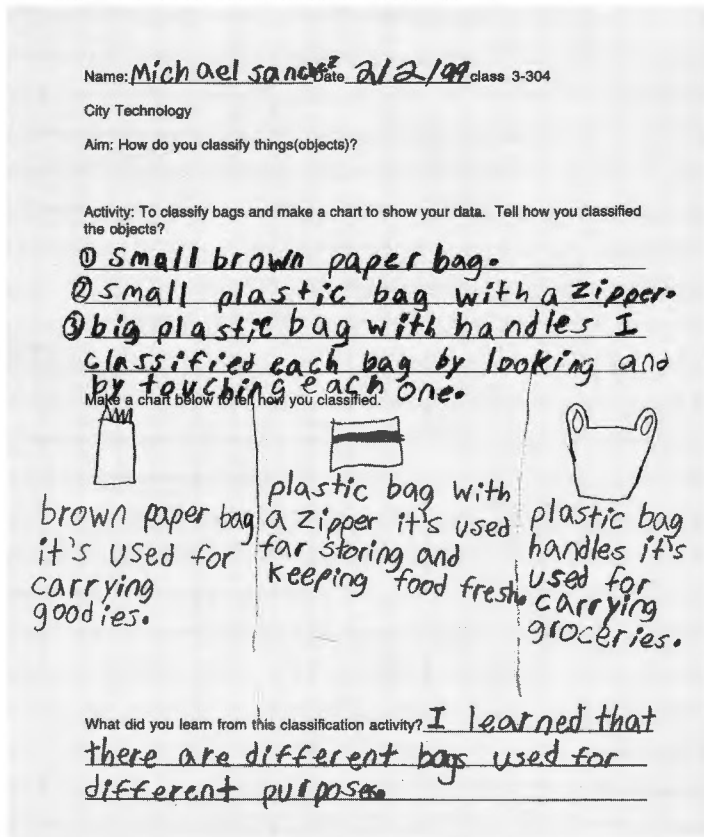 Name: Michael sanchez Date 2/2/99 class 3-304
City Technology
Aim: How do you classify things(objects)?
Activity: To classify bags and make a chart to show your data. Tell how you classified
the objects?
① small brown paper bag.
② small plastic bag with a zipper.
③ big plastic bag with handles I
classified each bag by looking and
by touching each one.
Make a chart below to tell how you classified.
brown paper bag
it's used for
carrying
goodies.
plastic bag with
a zipper it's used
for storing and
keeping food fresh.
plastic bag
handles it's
used for
carrying
groceries.
What did you learn from this classification activity? I learned that
there are different bags used for
different purposes.